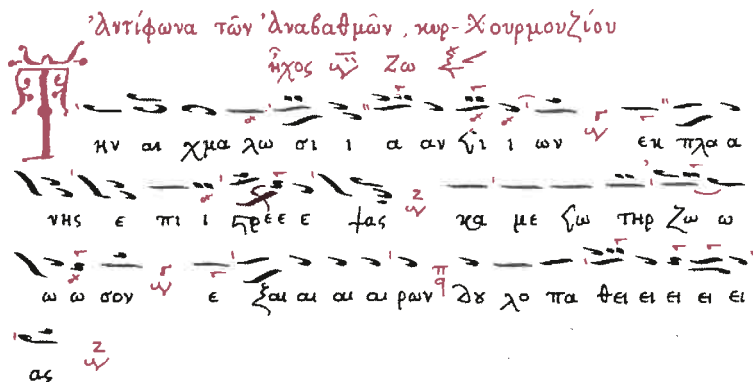 Ἀντίφωνα τῶν Ἀναβαθμῶν, κυρ-Χουρμουζίου
ἦχος Ζω
Τ ην αι χμα λω σι ι α αν ϛι ι ων εκ πλα α
νης ε πι ι ϛρεε ε ψας κα με ϛω τηρ Ζω ω
ω ω σον ε ξαι αι αι αι ρων δȣ λο πα θει ει ει ει ει
ας